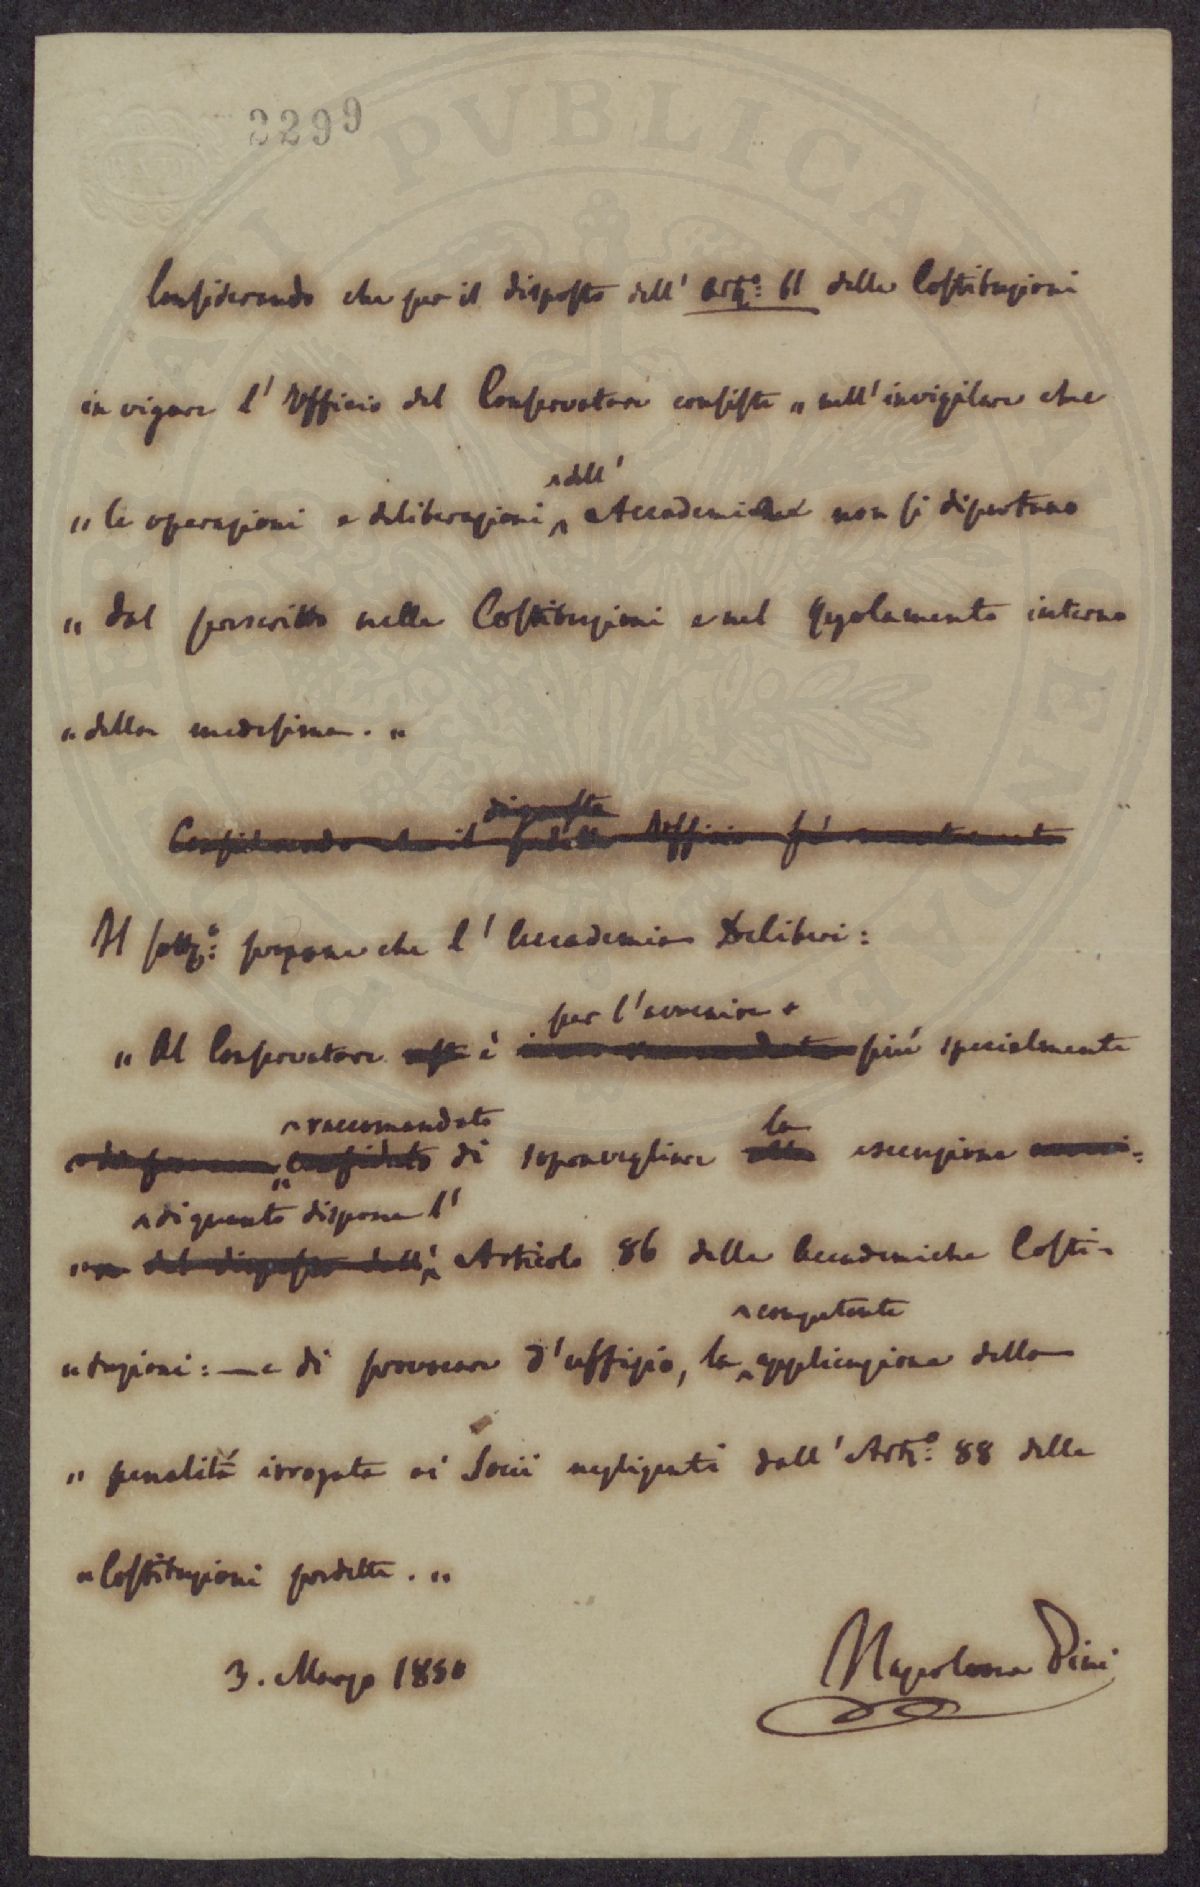 2299
PVBLICAE
Considerando che per il disposto dell' Artº: 61 delle Costituzioni
in vigore l'Ufficio del Conservatore consiste „ nell'invigilare che
dell'
„ le operazioni e deliberazioni Accademiche non si dipartano
„ dal prescritto nelle Costituzioni e nel Regolamento interno
„ della medesima. „
Considerando che il suddetto Ufficio
Il sottoº: propone che l'Accademia Deliberi:
per l'avvenire
„ Al Conservatore è più specialmente
raccomandato la
confidato di sopravegliare alla esecuzione
di quanto dispone l'
„ del disposto dell' Articolo 86 delle Accademiche Costi-
competente
„ tuzioni: — e di provocare d'uffizio, la applicazione della
„ penalità irrogata ai Socii negligenti dall'Artº: 88 delle
„ Costituzioni predette. „
3. Marzo 1850
Napoleone Pini